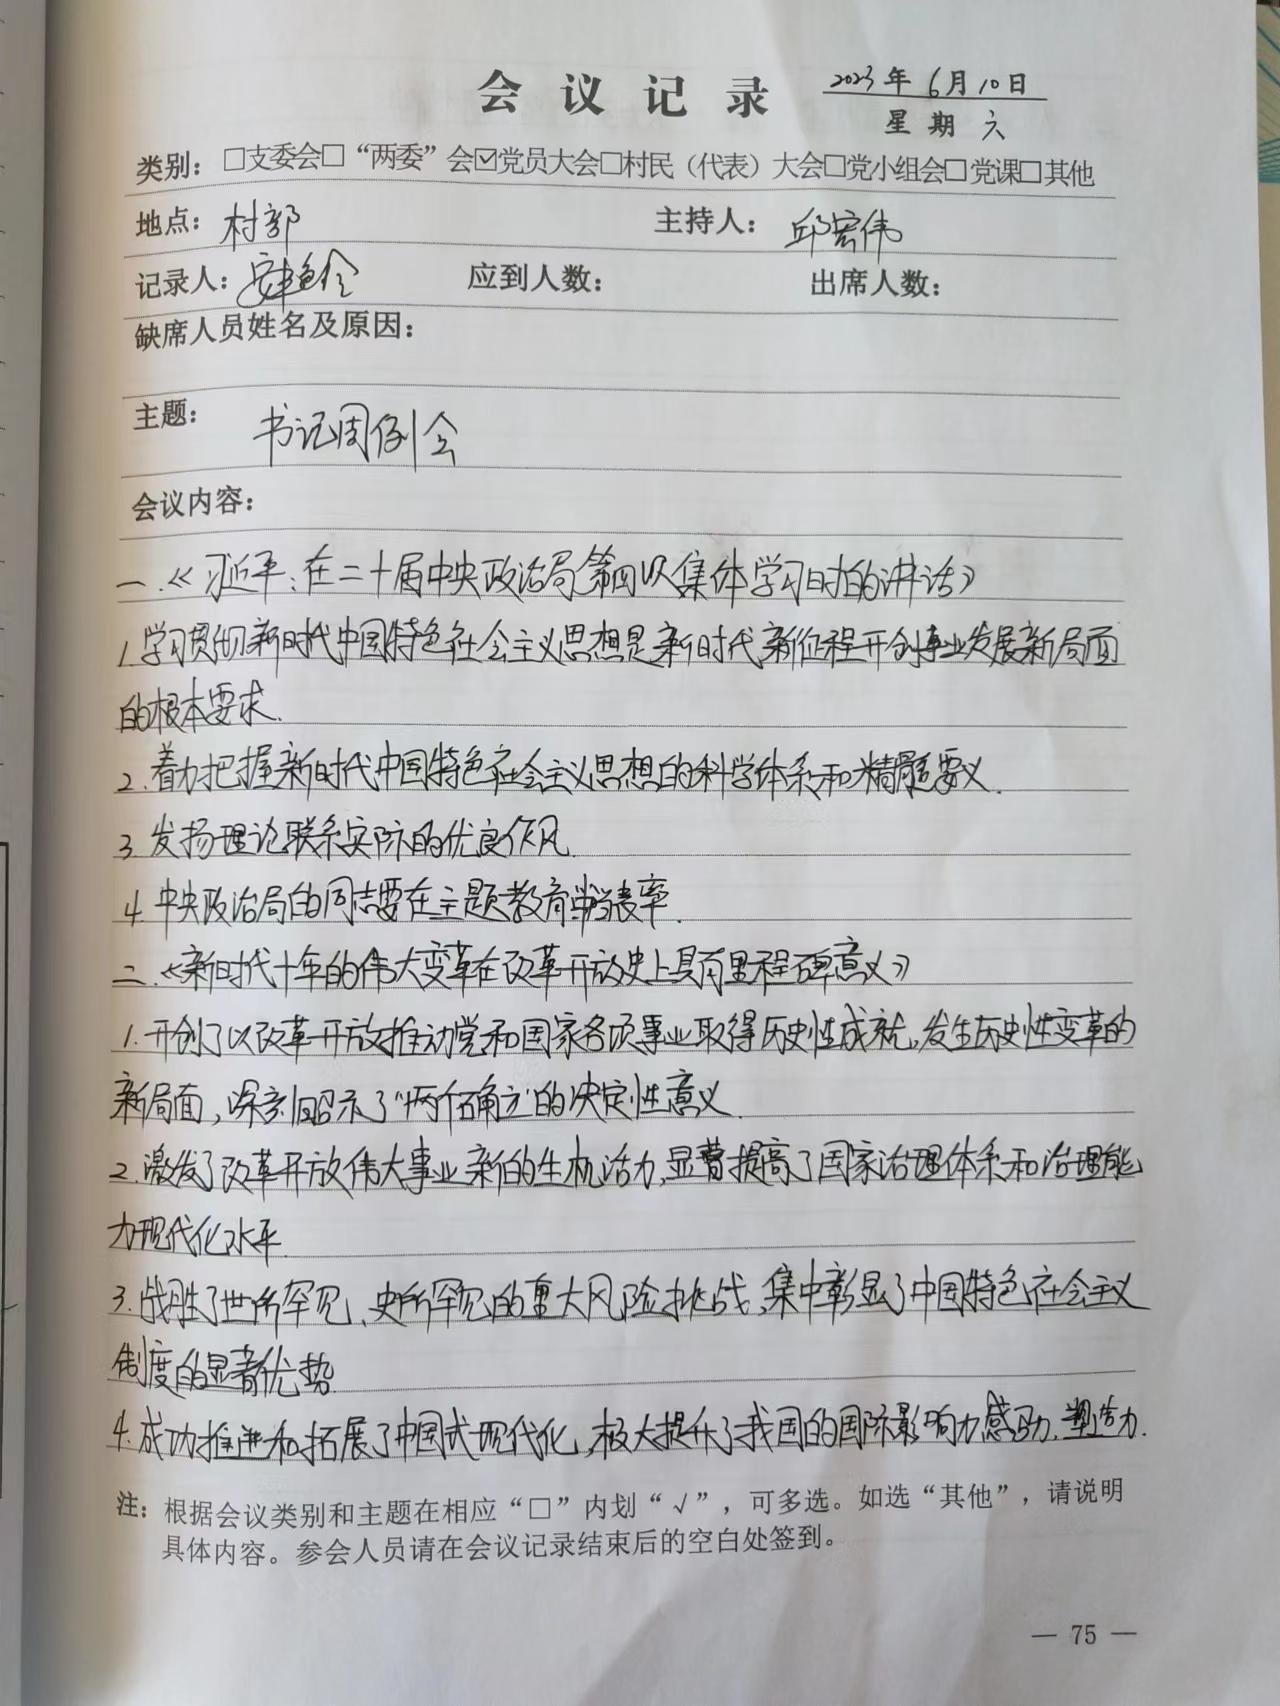 会议记录 2023年6月10日
星期六
类别：□支委会□“两委”会☑党员大会□村民（代表）大会□党小组会□党课□其他
地点：村部 主持人：邱宏伟
记录人： 应到人数： 出席人数：
缺席人员姓名及原因：
主题：书记周例会
会议内容：
一.《习近平：在二十届中央政治局第四次集体学习时的讲话》
1.学习贯彻新时代中国特色社会主义思想是新时代新征程开创事业发展新局面
的根本要求.
2.着力把握新时代中国特色社会主义思想的科学体系和精髓要义.
3.发扬理论联系实际的优良作风.
4.中央政治局的同志要在主题教育当表率.
二.《新时代十年的伟大变革在改革开放史上具有里程碑意义》
1.开创了以改革开放推动党和国家各项事业取得历史性成就,发生历史性变革的
新局面,深刻昭示了“两个确立”的决定性意义.
2.激发了改革开放伟大事业新的生机活力,显著提高了国家治理体系和治理能
力现代化水平.
3.战胜了世所罕见、史所罕见的重大风险挑战,集中彰显了中国特色社会主义
制度的显著优势.
4.成功推进和拓展了中国式现代化,极大提升了我国的国际影响力感召力.塑造力.
注：根据会议类别和主题在相应“□”内划“√”，可多选。如选“其他”，请说明
具体内容。参会人员请在会议记录结束后的空白处签到。
— 75 —